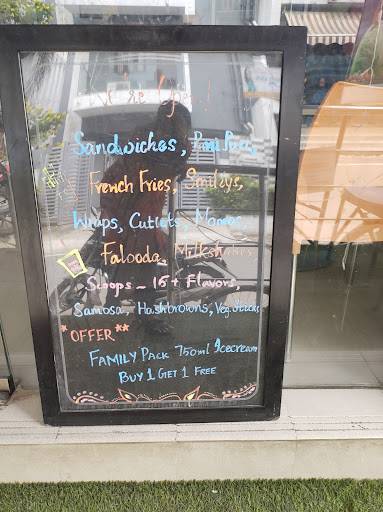 We're Open!
Sandwiches, Pani Puri,
French Fries, Smileys,
Wraps, Cutlets, Momos,
Falooda, Milkshakes
Scoops ~ 16+ Flavors,
Samosa, Hashbrowns, Veg.
*OFFER**
FAMILY PACK 750ml Icecream
BUY 1 GET 1 FREE